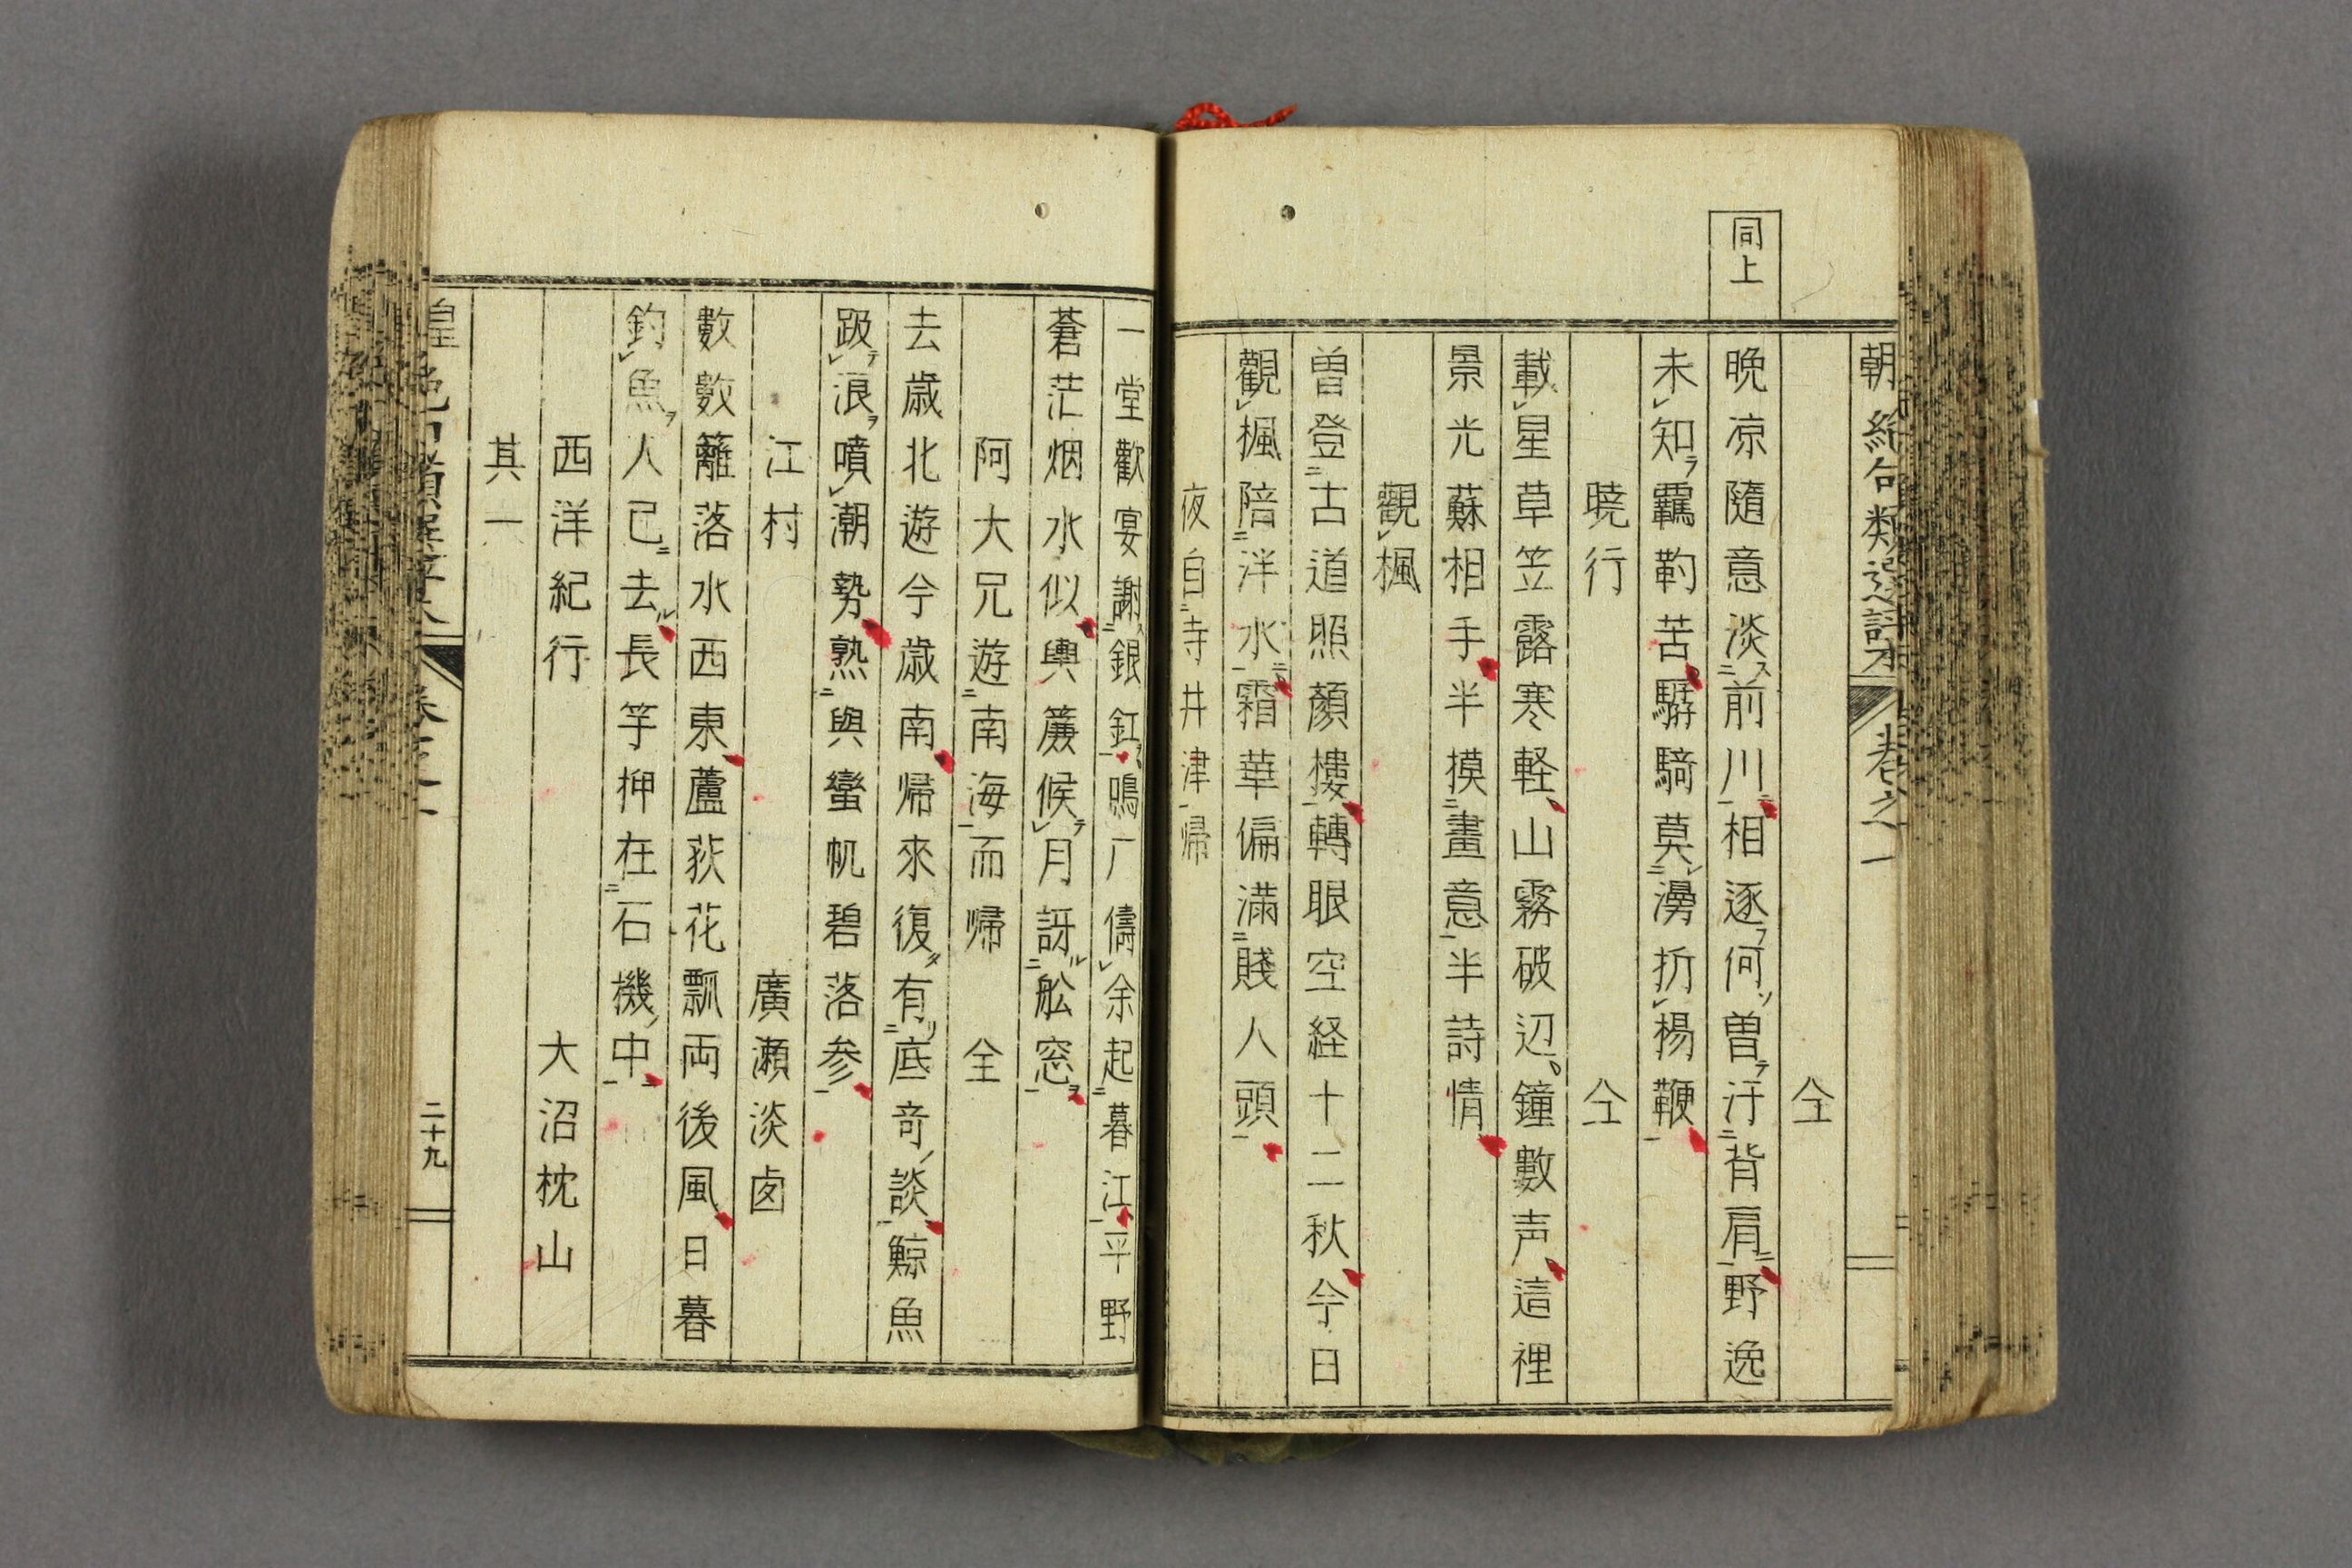 同上
朝絶句類選評本 卷之一
仝
晩凉隨意淡前川相逐何曽汙背肩野逸
未知羈靮苦騈騎莫澇折楊鞭
暁行 仝
載星草笠露寒軽山霧破辺鐘數声這裡
景光蘇相手半摸畫意半詩情
觀楓
曽登古道照顏樓轉眼空経十二秋今日
觀楓陪洋水霜華偏滿賤人頭
夜自寺井津帰
一堂歡宴謝銀釭鳴厂儔余起暮江平野
蒼茫烟水似輿簾候月訝舩窓
阿大兄遊南海而帰 仝
去歳北遊今歳南帰來復有底竒談鯨魚
跋浪噴潮勢熟與蠻帆碧落参
江村 廣瀬淡囱
數數籬落水西東蘆荻花瓢両後風日暮
釣魚人已去長竿押在石機中
西洋紀行 大沼枕山
其一
皇 二十九